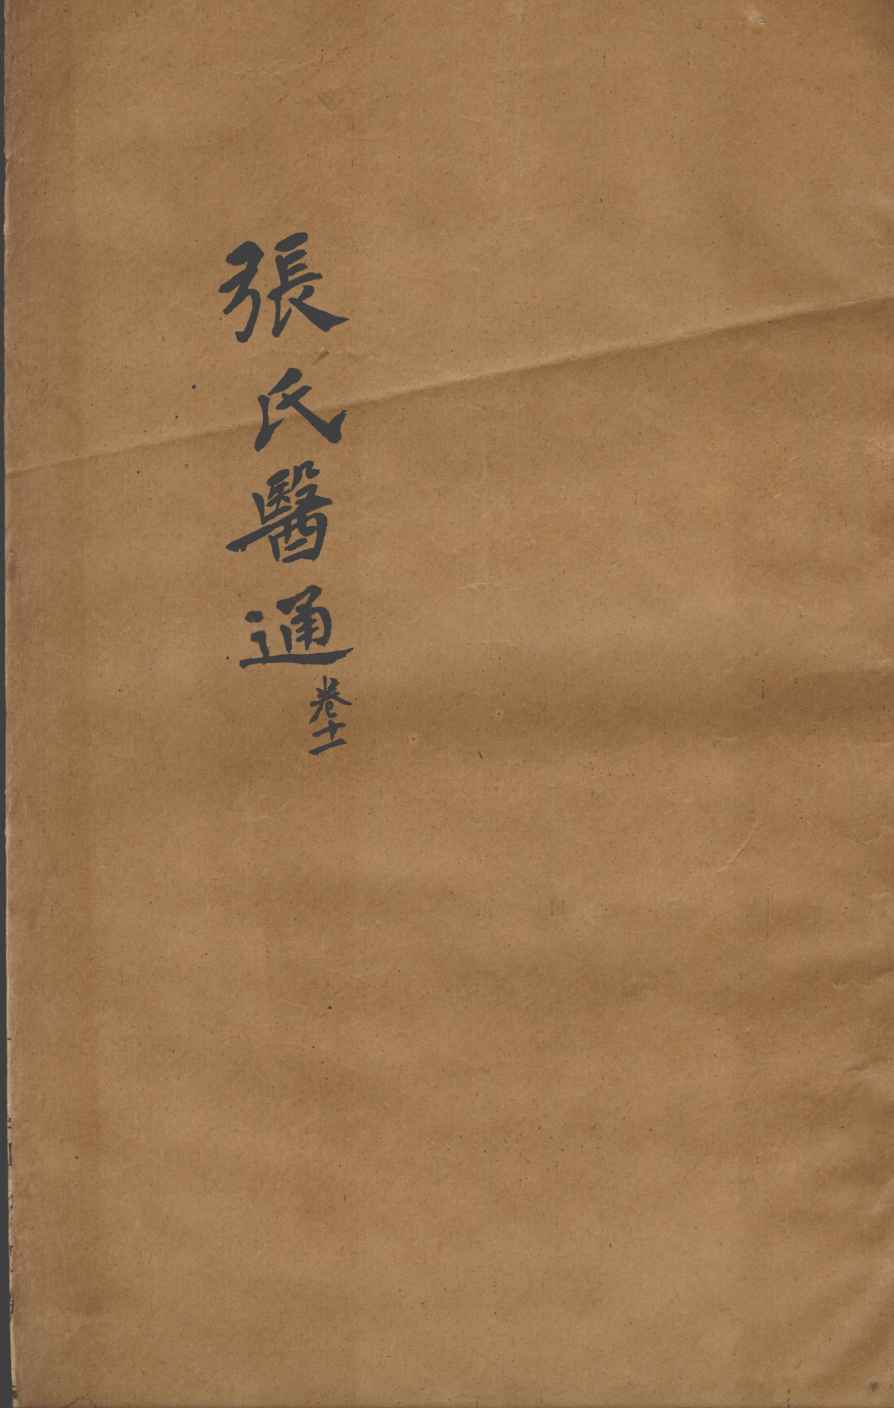 張氏醫通
卷十一